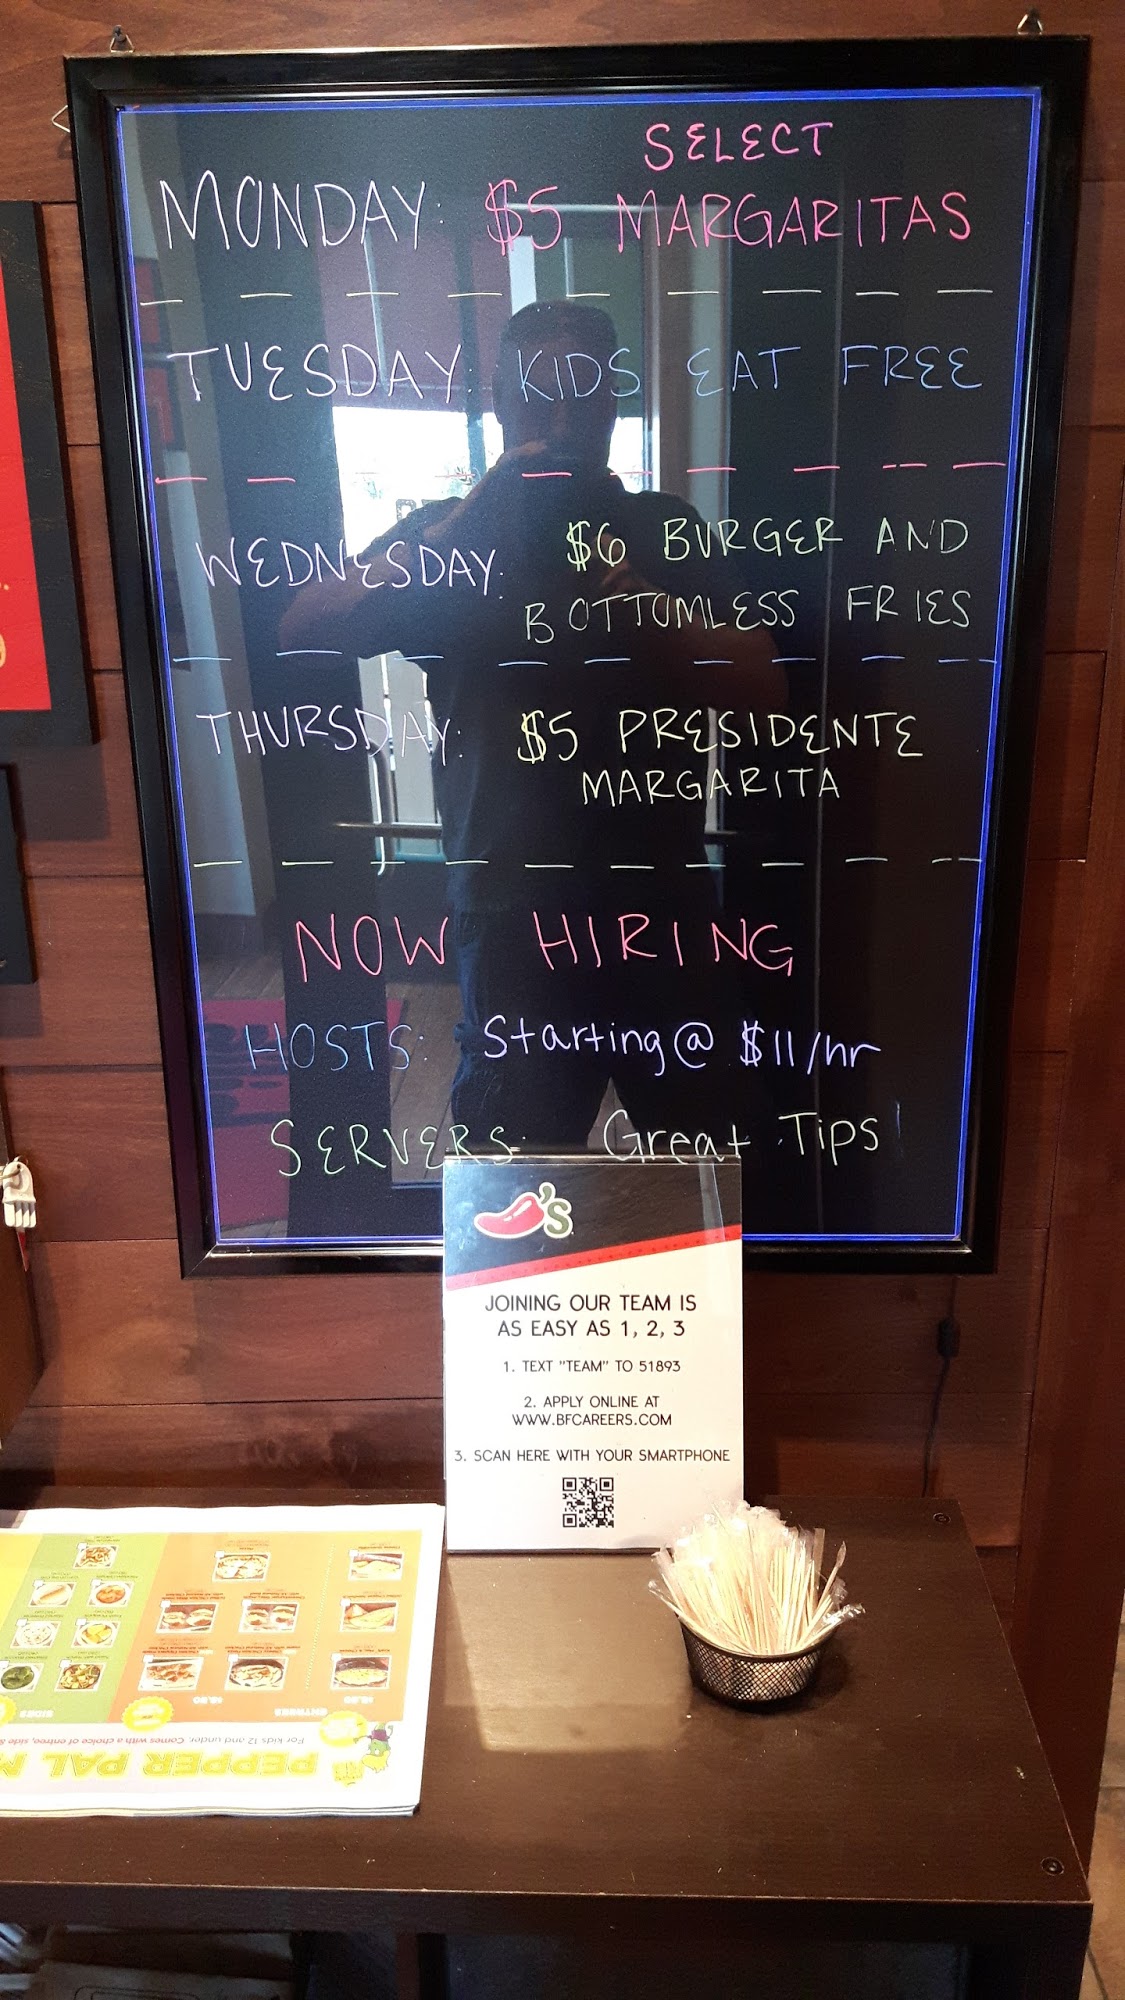 SELECT
MONDAY: $5 MARGARITAS
TUESDAY: KIDS EAT FREE
WEDNESDAY: $6 BURGER AND
BOTTOMLESS FRIES
THURSDAY: $5 PRESIDENTE
MARGARITA
NOW HIRING
HOSTS: Starting @ $11/hr
SERVERS: Great Tips!
'S
JOINING OUR TEAM IS
AS EASY AS 1, 2, 3
1. TEXT "TEAM" TO 51893
2. APPLY ONLINE AT
WWW.BFCAREERS.COM
3. SCAN HERE WITH YOUR SMARTPHONE
PEPPER PAL
For kids 12 and under. Comes with a choice of entree, side &
ENTREES
SIDES